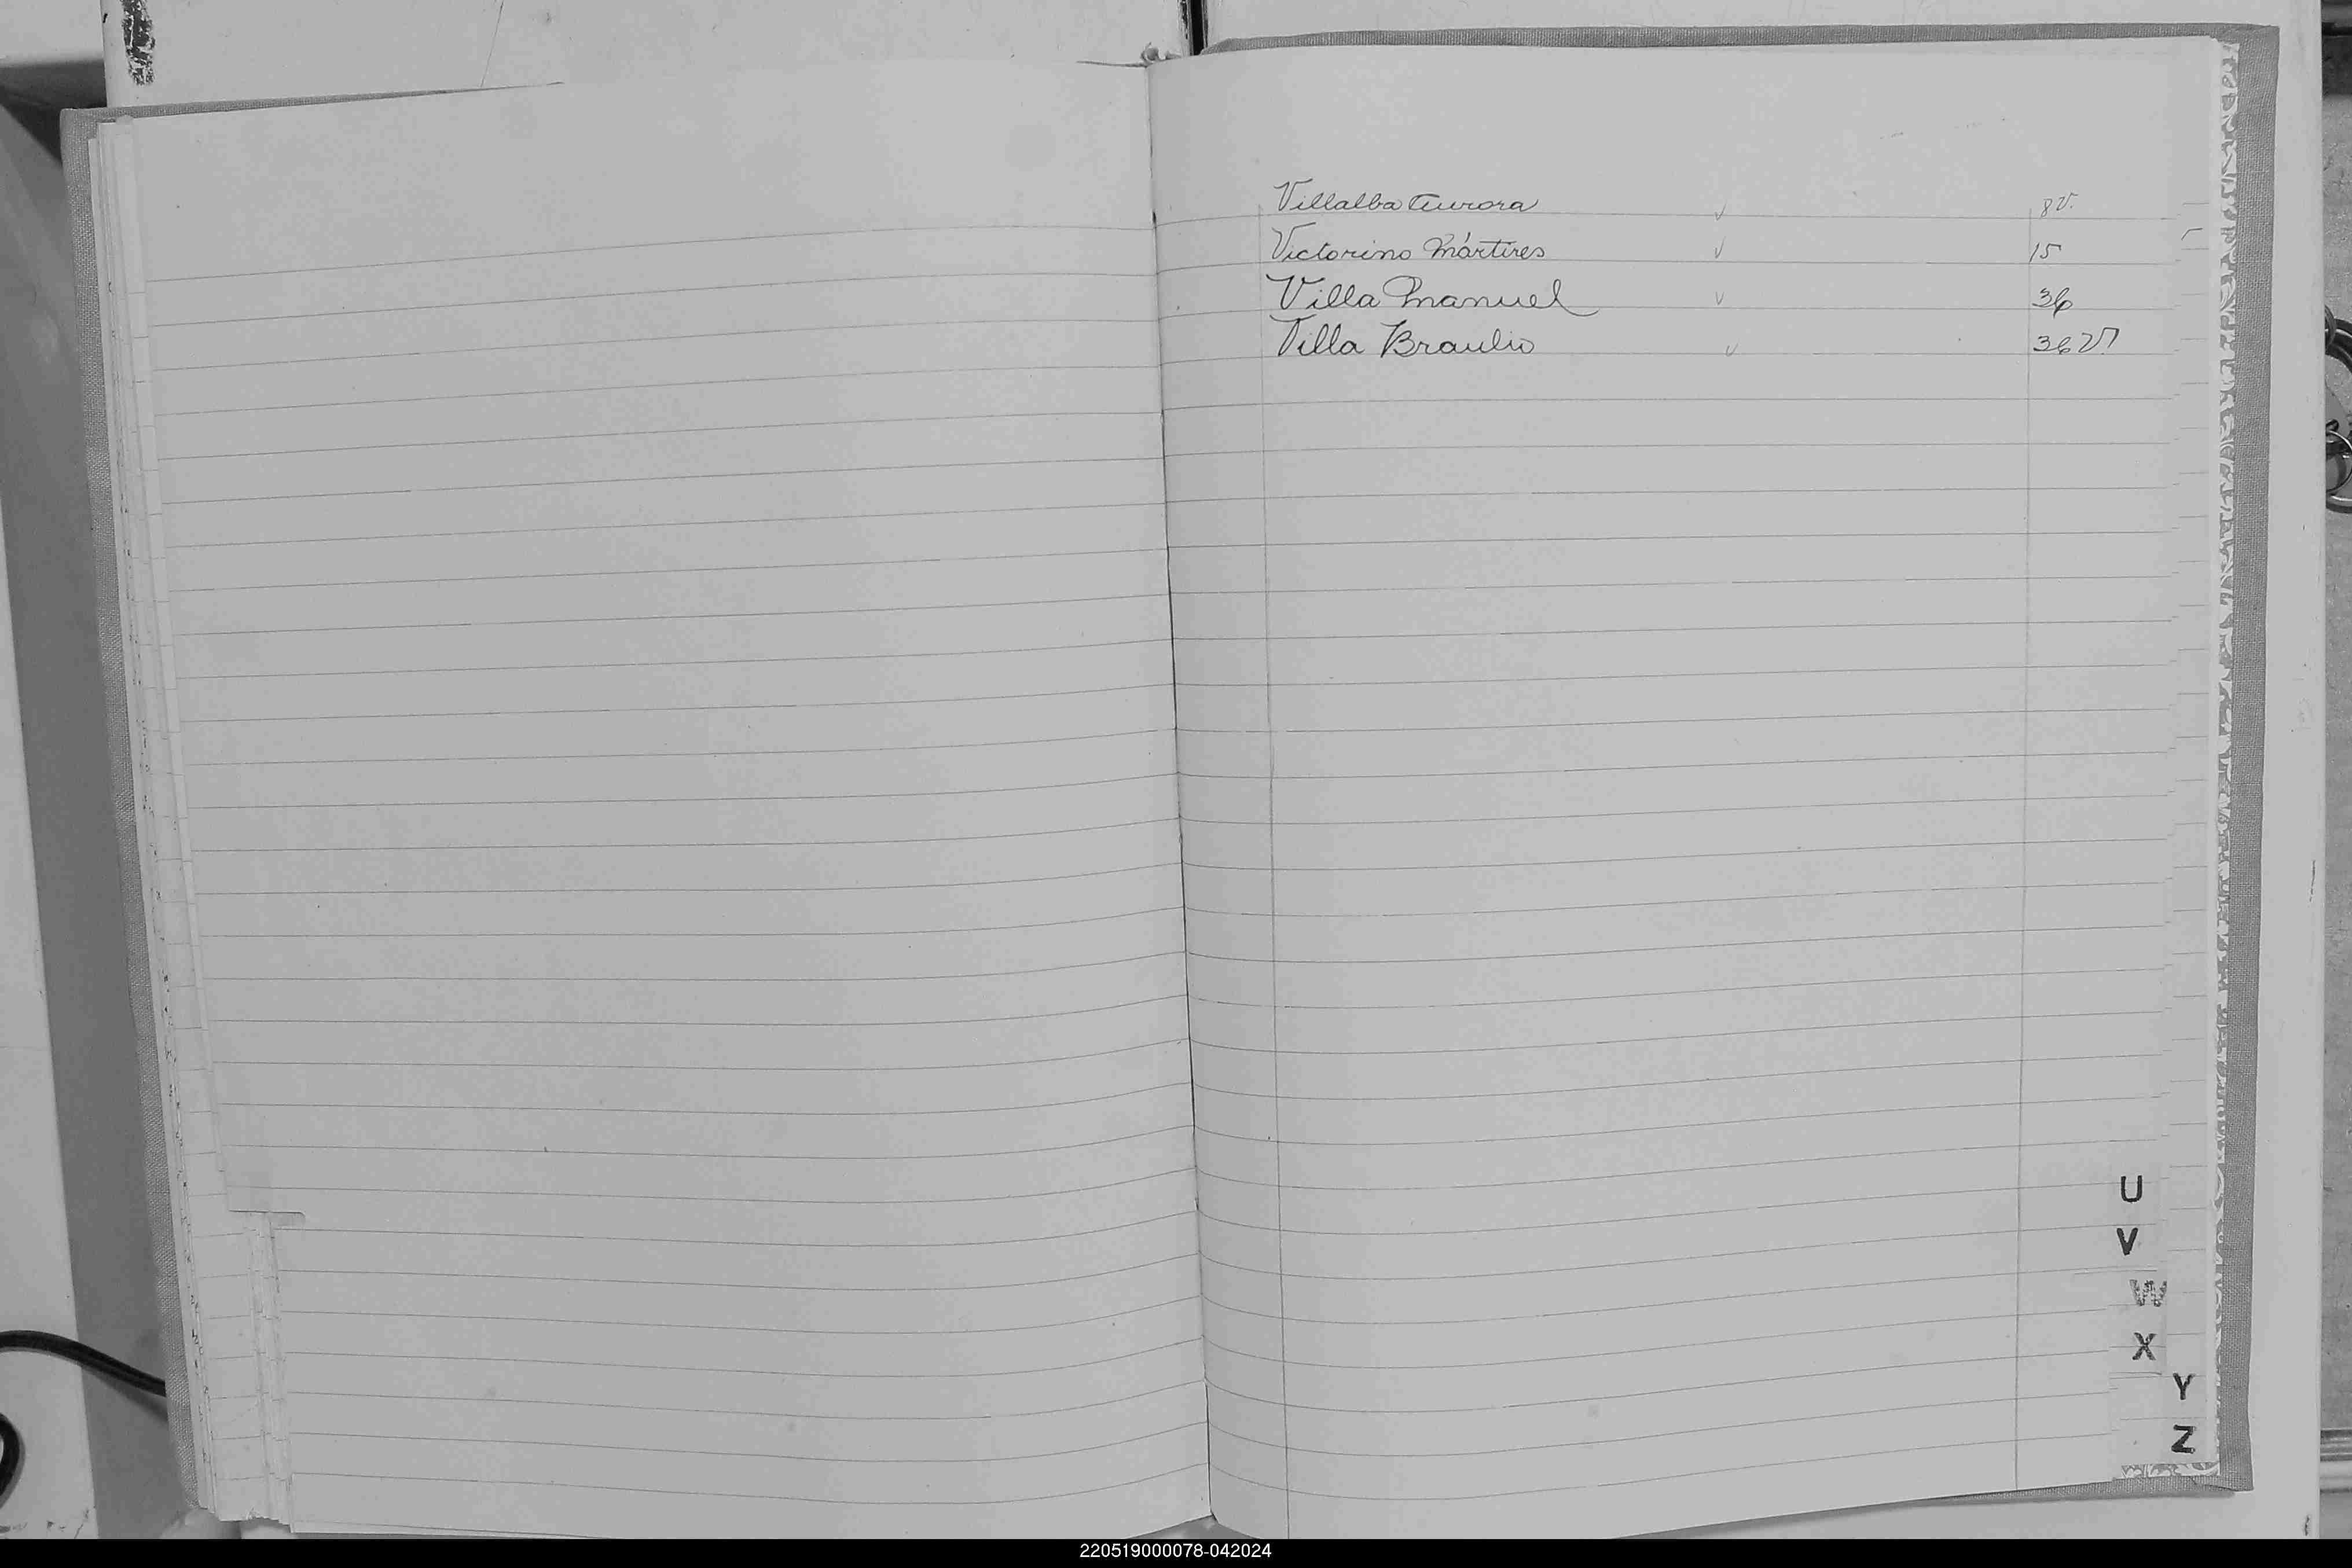 Villalba Aurora √ 8 v.
Victorino Mártires √ 15
Villa Manuel √ 36
Villa Braulio √ 36 v
U
V
W
X
Y
Z
220519000078-042024